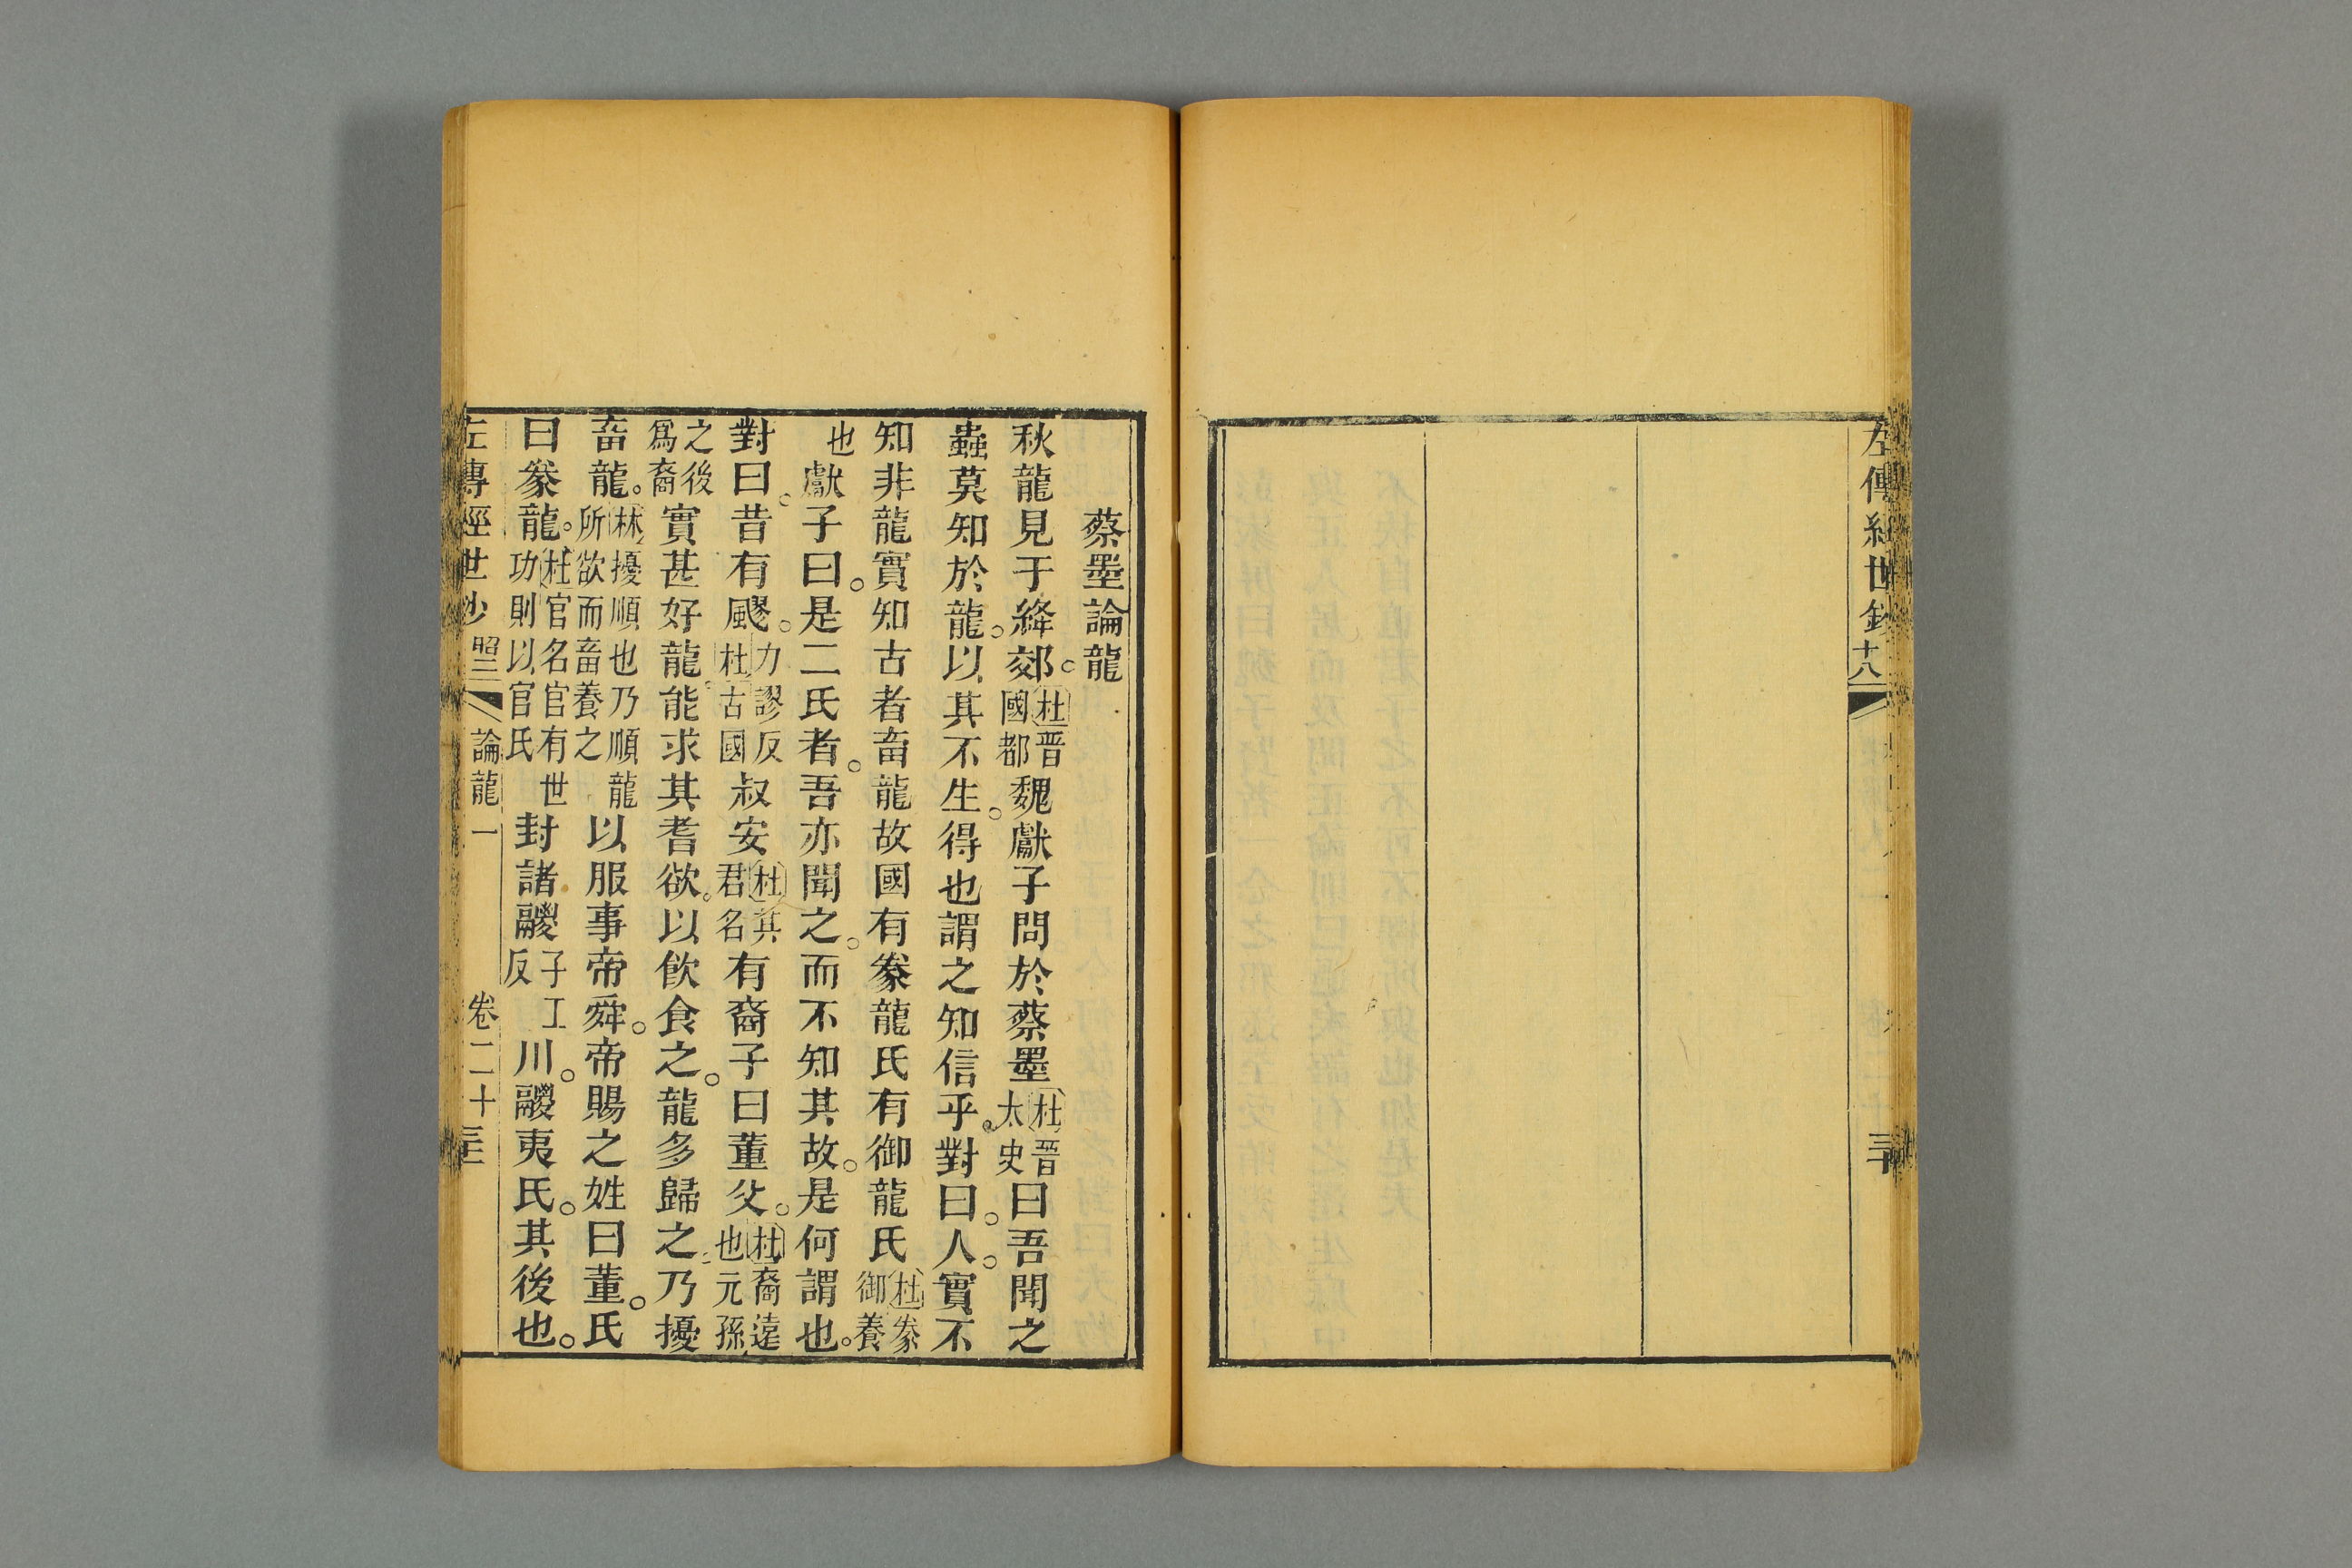 左傳經世鈔
十八
三十
蔡墨論龍
秋龍見于絳郊。杜晉國都魏獻子問於蔡墨杜晉太史曰吾聞之
蟲莫知於龍。以其不生。得也謂之知信乎。對曰。人。實不
知非龍實知古者畜龍故國有豢龍氏有御龍氏杜豢御養
也獻子曰。是二氏者。吾亦聞之。而不知其故。是何謂也。
對曰。昔有飂。力謬反杜古國叔安杜其君名有裔子曰董父。杜裔遠也元孫
之後爲裔實甚好龍。能求其耆欲。以飲食之。龍多歸之乃擾
畜龍。林擾順也乃順龍所欲而畜養之以服事帝舜。帝賜之姓曰董。氏
曰豢龍。杜官名官有世功則以官氏封諸鬷子工反川。鬷夷氏。其後也。
左傳經世鈔 昭三 論龍一 卷二十